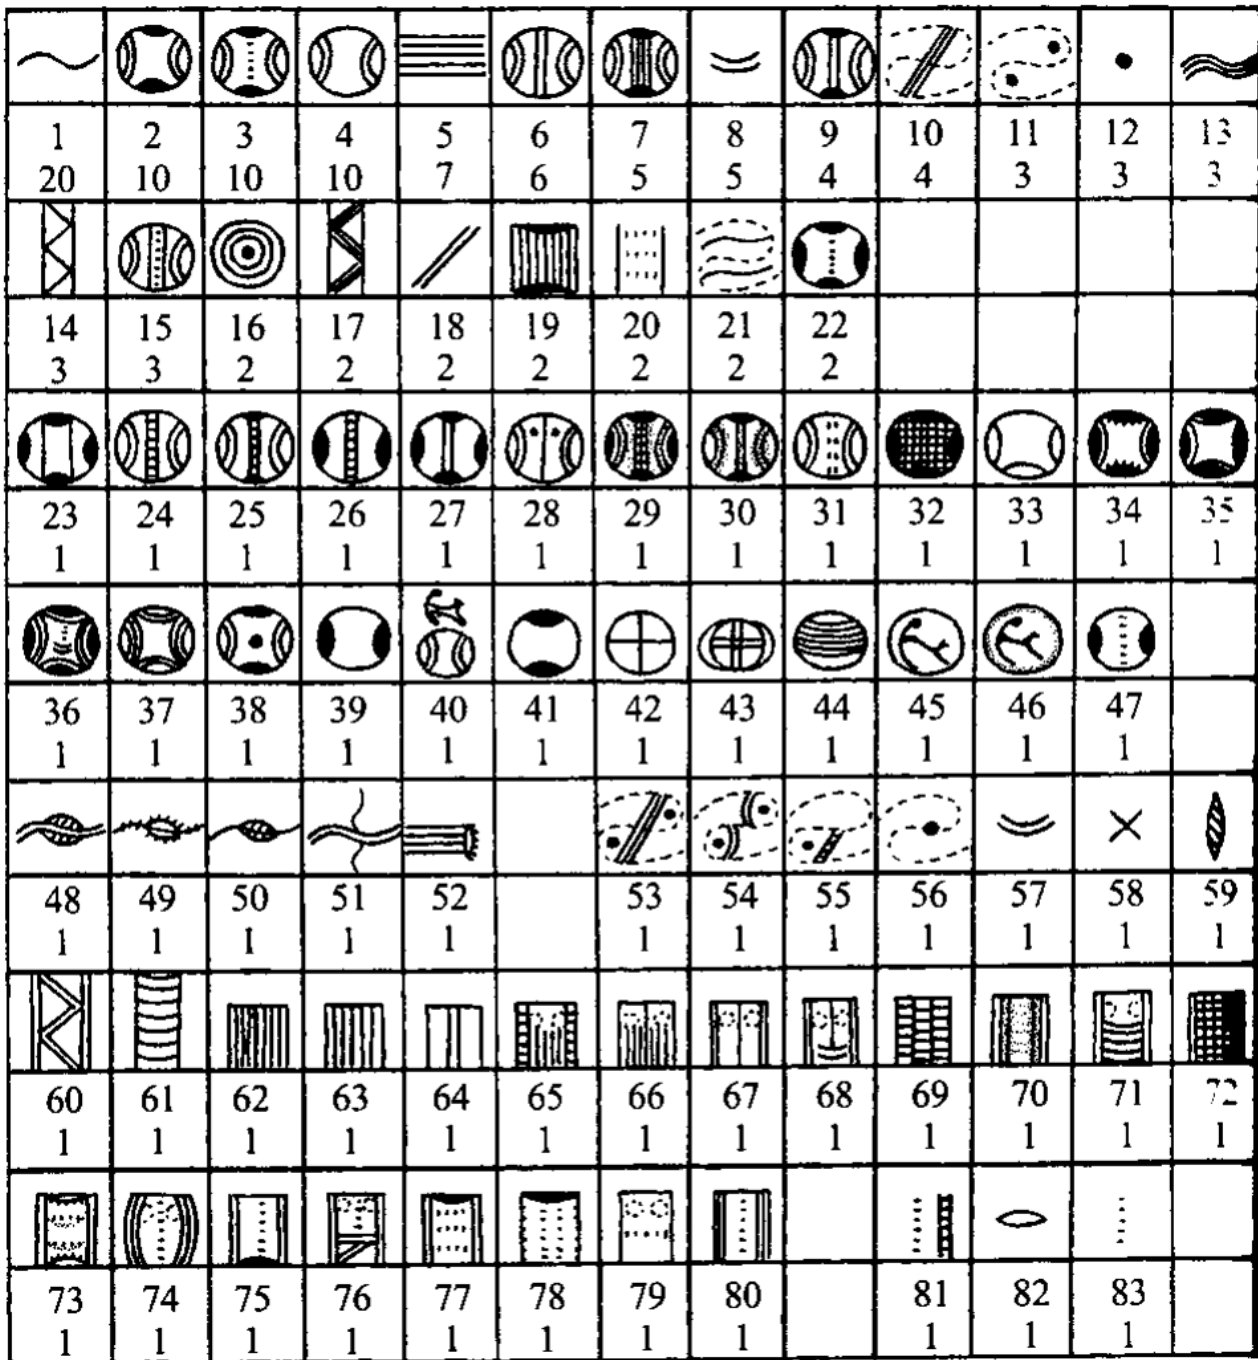 1 2 3 4 5 6 7 8 9 10 11 12 13
20 10 10 10 7 6 5 5 4 4 3 3 3
14 15 16 17 18 19 20 21 22
3 3 2 2 2 2 2 2 2
23 24 25 26 27 28 29 30 31 32 33 34 35
1 1 1 1 1 1 1 1 1 1 1 1 1
36 37 38 39 40 41 42 43 44 45 46 47
1 1 1 1 1 1 1 1 1 1 1 1
48 49 50 51 52 53 54 55 56 57 58 59
1 1 1 1 1 1 1 1 1 1 1 1
60 61 62 63 64 65 66 67 68 69 70 71 72
1 1 1 1 1 1 1 1 1 1 1 1 1
73 74 75 76 77 78 79 80 81 82 83
1 1 1 1 1 1 1 1 1 1 1